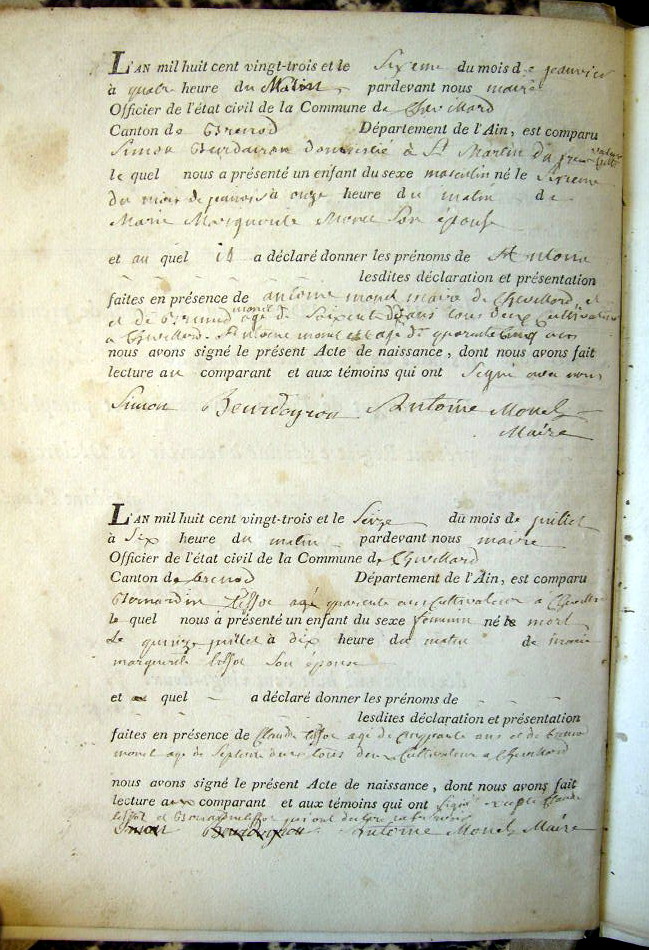 L'AN mil huit cent vingt-trois et le Sixeme du mois de jeanvier
à quatre heure du Matin pardevant nous maire
Officier de l'état civil de la Commune de Chevillard
Canton de Brenod Département de l'Ain, est comparu
Simon domicilié à St Martin du
le quel nous a présenté un enfant du sexe masculin né le Sixeme
du mois de janvier à onze heure du matin de
Marie Marguerite Monel Son épouse
et au quel il a déclaré donner les prénoms de Antoine
lesdites déclaration et présentation
faites en présence de antoine monel maire de Chevillard et
et de monel agé de Soixente ans tous deux Cultivateur
a Chevillard. Antoine monel est agé de quarente Cinq ans
nous avons signé le présent Acte de naissance, dont nous avons fait
lecture au comparant et aux témoins qui ont Signé avec nous
Simon Beurdeyron Antoine Monel
Maire
L'AN mil huit cent vingt-trois et le Seize du mois de juillet
à Six heure du matin pardevant nous maire
Officier de l'état civil de la Commune de Chevillard
Canton de brenod Département de l'Ain, est comparu
Bernardin tissot agé quarente ans Cultivateur a Chevillard
le quel nous a présenté un enfant du sexe féminin né mort
Le quinze juillet à dix heure du matin de marie
marguerite tissot Son épouse
et quel a déclaré donner les prénoms de
lesdites déclaration et présentation
faites en présence de Claude tissot agé de Cinquante ans et de
monel agé de Septente tous deux Cultivateur a Chevillard
nous avons signé le présent Acte de naissance, dont nous avons fait
lecture aux comparant et aux témoins qui ont Signé excepté Claude
tissot et Bernardin tissot qui ont
Simon Beurdeyron Antoine Monel Maire